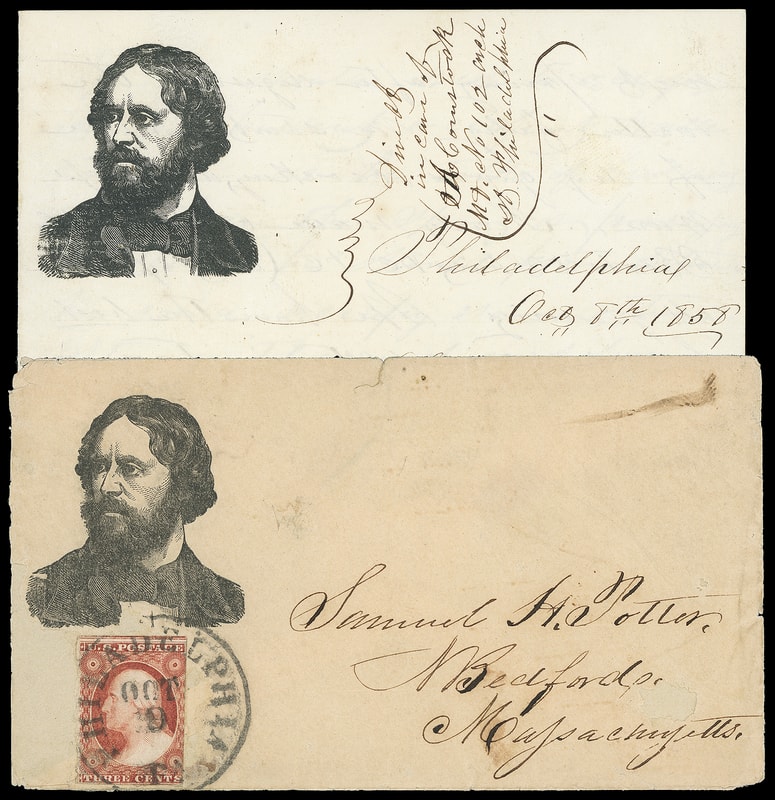 Direct
in care of
Comstock
No. 102 arch
St Philadelphia
Philadelphia
Oct 8th 1858
Samuel H. Potter.
N Bedford.
Massachusetts.
U.S. POSTAGE
THREE CENTS
PHILADELPHIA
OCT
9